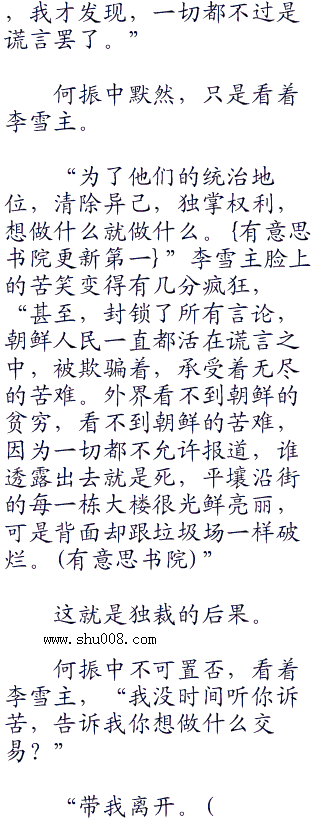 ，我才发现，一切都不过是
谎言罢了。”
何振中默然，只是看着
李雪主。
“为了他们的统治地
位，清除异己，独掌权利，
想做什么就做什么。{有意思
书院更新第一}”李雪主脸上
的苦笑变得有几分疯狂，
“甚至，封锁了所有言论，
朝鲜人民一直都活在谎言之
中，被欺骗着，承受着无尽
的苦难。外界看不到朝鲜的
贫穷，看不到朝鲜的苦难，
因为一切都不允许报道，谁
透露出去就是死，平壤沿街
的每一栋大楼很光鲜亮丽，
可是背面却跟垃圾场一样破
烂。(有意思书院)”
这就是独裁的后果。
www.shu008.com
何振中不可置否，看着
李雪主，“我没时间听你诉
苦，告诉我你想做什么交
易？”
“带我离开。(